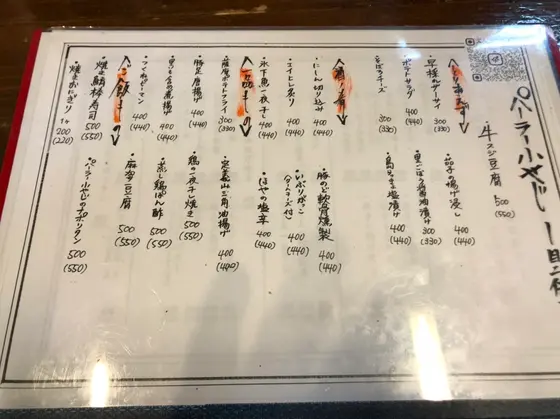 パーラー小やじ
・牛スジ豆腐 500 (550)
〈とりあえず〉
・早採れザーサイ 300 (330)
・ポテトサラダ 400 (440)
チーズ 300 (330)
・茄子の揚げ浸し 400 (440)
・黒ごぼう醤油漬け 300 (330)
塩漬け 400 (440)
・にしん切り込み 400 (440)
・エイヒレ炙り 400 (440)
・氷下魚一夜干し 400 (440)
・豚のど軟骨燻製 400 (440)
・いぶりがっこ (クリームチーズ付) 400 (440)
・ほやの塩辛 400 (440)
〈一品もの〉
・薩摩ポテトフライ 300 (330)
・豚足唐揚げ 400 (440)
揚げ 400 (440)
・つくねピーマン 400 (440)
・定義山三角油揚げ 400 (440)
・鶏の一夜干し焼き 500 (550)
・蒸し鶏ぽん酢 500 (550)
・麻婆豆腐 500 (550)
・焼き鯖棒寿司 500 (550)
・焼きおにぎり 1ヶ 200 (220)
・パーラー小やじのナポリタン 500 (550)